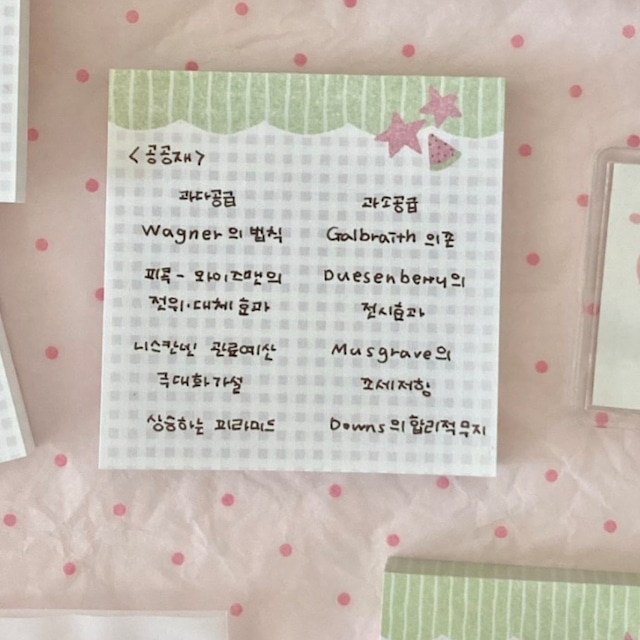 <공공재>
과다공급 과소공급
Wagner의 법칙 Galbraith 의존
피콕-와이즈맨의 Duesenberry의
전위·대체 효과 전시효과
니스칸넨 관료예산 Musgrave의
극대화가설 조세저항
상승하는 피라미드 Downs의 합리적 무지